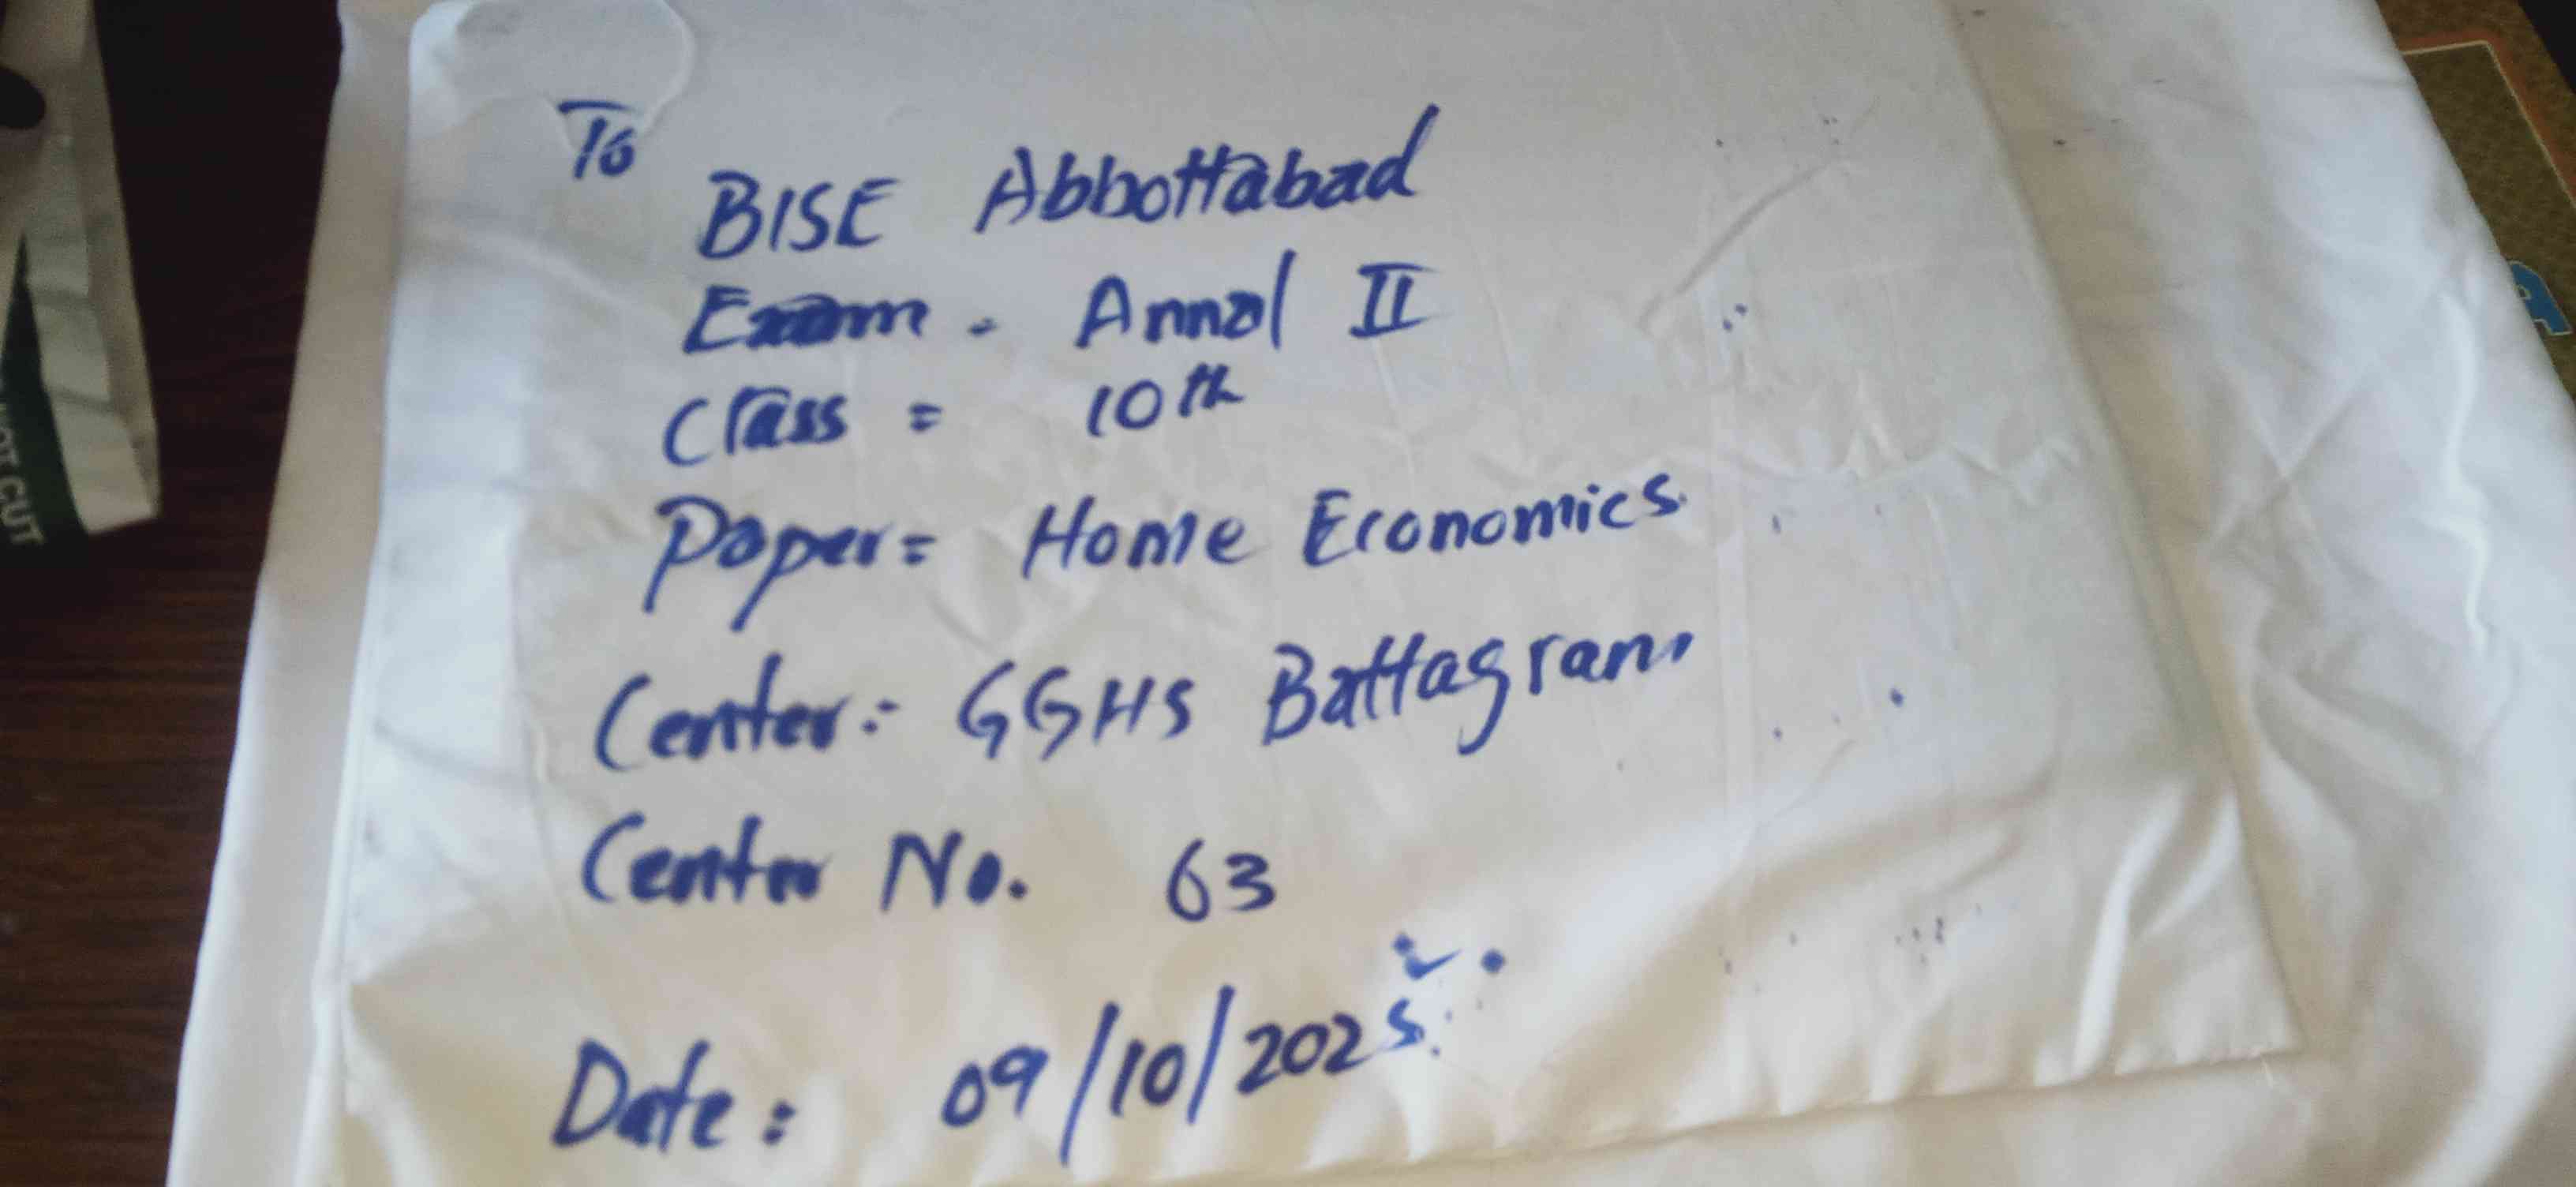 To
BISE Abbottabad
Exam - Annal II
Class = 10th
Paper= Home Economics.
Center:- GGHS Battagram
Center No. 63
Date: 09/10/2025
NOT CUT
A